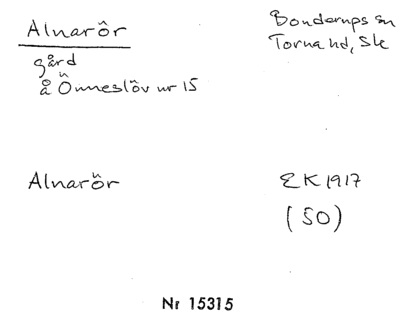 Alnarör
Bonderups sn
Torna hd, Sk
gård
å Önneslöv nr 15
Alnarör
EK 1917
(50)
Nr 15315